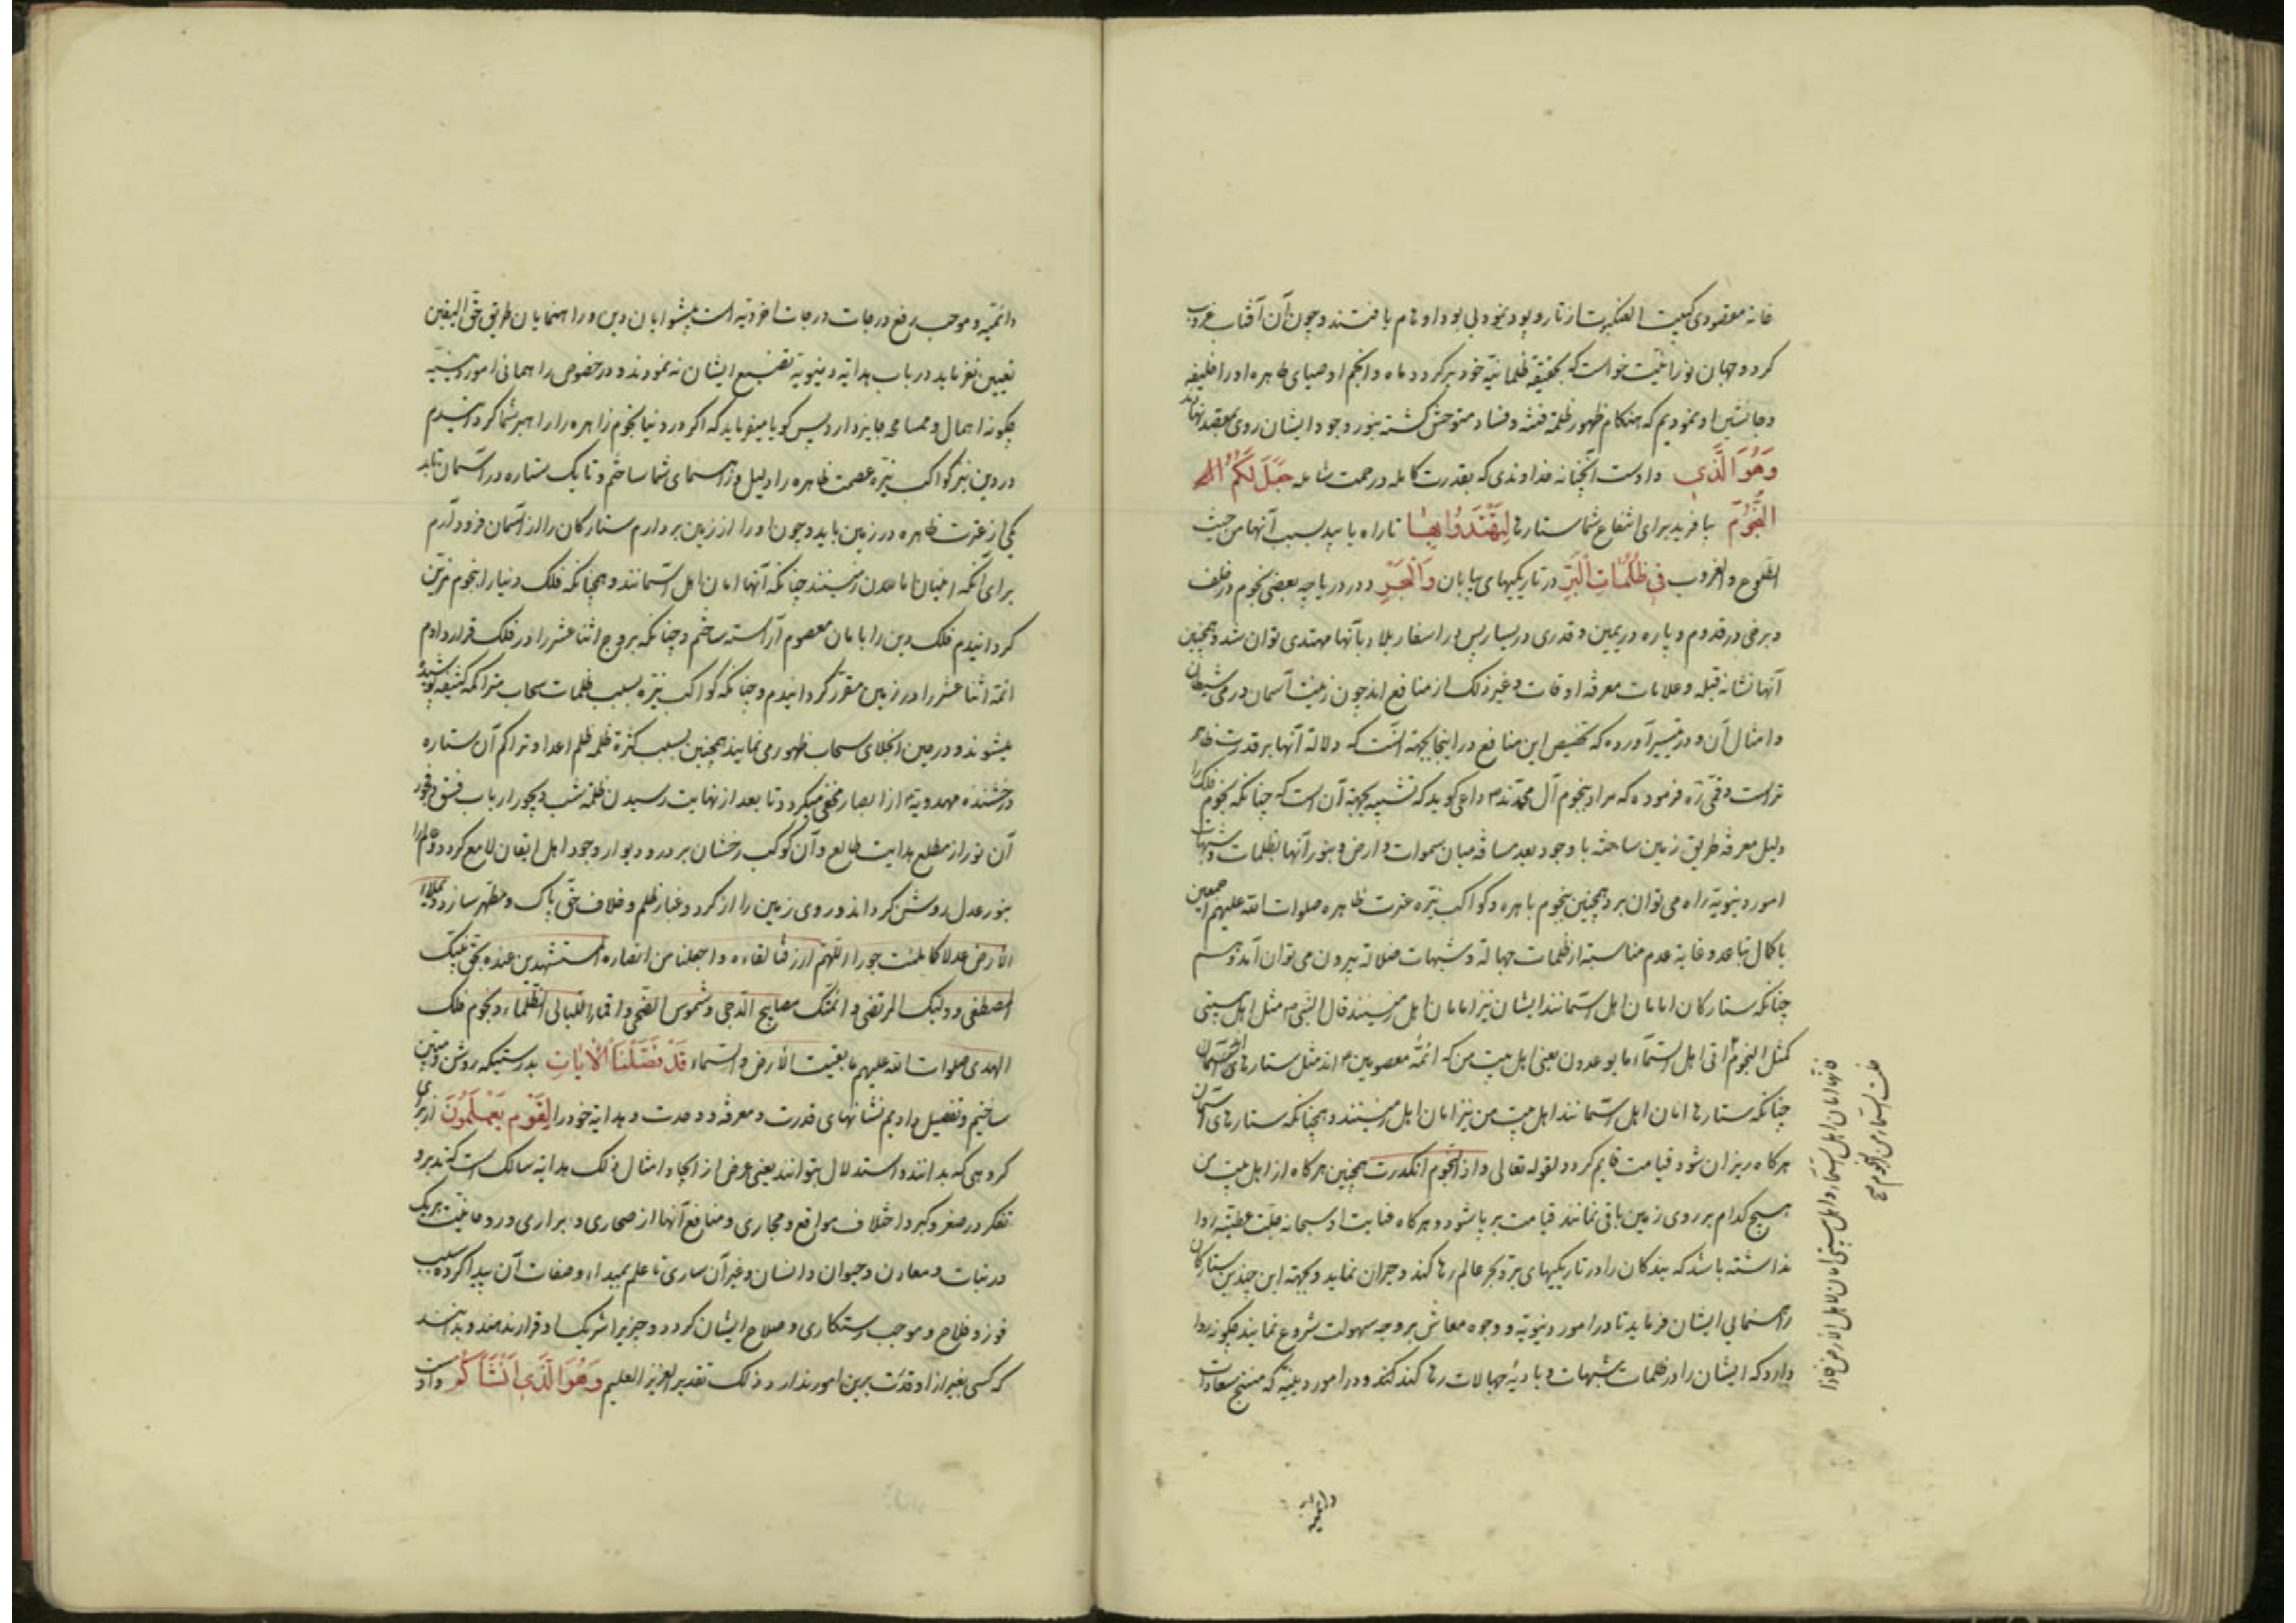 خانه معقودی کبیت العنکبوت از تار و پود بی بود اوهام بافتند و چون آن آفتاب غروب
کرد و جهان نورانیت خواست که بحقیقة ظلمانیة خود برگردد ماه و انجم اوصیای طاهره او را خلیفه
و جانشین او نمودیم که هنکام ظهور ظلمة فتنه و فساد متوحش کشته بنور وجود ایشان روی بمقصد نهاند
وَهُوَ الَّذي و اوست آنچنانه خداوندی که بقدرت کامله و رحمت شامله جَعَلَ لَكُمُ
النُّجُومَ بیافرید برای انتفاع شما ستارها لِتَهْتَدُوا بِها تا راه یابید بسبب آنها من حیث
الطلوع و الغروب في ظُلُماتِ الْبَرِّ در تاریکیهای بیابان وَالْبَحْرِ و در دریا چه بعضی نجوم در خلف
و برخی در قدوم و پاره در یمین و قدری در یسار پس در اسفار بلاد بآنها مهتدی توان شد و همچنین
آنها نشانه قبله و علامات معرفة اوقات و غیر ذلک از منافع اند چون زینت آسمان و رمی شیطان
و امثال آن و در تفسیر آورده که تخصیص این منافع در اینجا بجهة آنست که دلالة آنها بر قدرت ظاهر
تر است و قمی ره فرموده که مراد بنجوم آل محمدند داعی کوید که تشبیه بجهة آن است که چنانکه نجوم فلک را
دلیل معرفة طریق زمین ساخته با وجود بعد مسافه میان سموات و ارض و بنور آنها بظلمات و شبهات
امور دنیویة راه می توان برد همچنین بنجوم باهره و کواکب نیّره عترت طاهره صلوات الله علیهم اجمعین
با کمال تباعد و غایة عدم مناسبة از ظلمات جهالة و شبهات ضلالة بیرون می توان آمد و هم
چنانکه ستارکان امامان اهل آسمانند ایشان نیز امامان اهل زمینند قال النبی ص مثل اهل بیتی
کمثل النجوم اتی اهل السماء ما یوعدون یعنی اهل بیت من که ائمه معصومین اند مثل ستارهای آسمان
چنانکه ستارها امان اهل آسمانند اهل بیت من نیز امان اهل زمینند و همچنانکه ستارهای آسمان
هرکاه ریزان شود قیامت قایم کردد لقوله تعالی و اذا النجوم انکدرت همچنین هرکاه از اهل بیت من
هیچ کدام بر روی زمین باقی نمانند قیامت برپا شود و هرکاه عنایت او سبحانه جلّت عطیته روا
نداشته باشد که بندکان را در تاریکیهای بر و بحر عالم رها کند و حیران نماید و بجهة این چندین ستارکان
راهنمایی ایشان فرماید تا در امور دنیویة و وجوه معاش بر وجه سهولت شروع نمایند چکونه روا
دارد که ایشان را در ظلمات شبهات و بادیهٔ جهالات رها کند و در امور دینیه که منتج سعادات
فانها امان لاهل السماء و اهل بیتی امان لاهل الارض فاذا
خلت السماء من النجوم
دائمیه
دائمیّه و موجب رفع درجات درجات اخرویّه است پیشوایان دین و راهنمایان طریق حقّ الیقین
تعیین نفرماید در باب هدایة دنیویة تضییع ایشان نه نمودند و در خصوص راهنمائی امور دینیّه
چکونه اهمال و مسامحه جایز دارد پس کویا میفرماید که اکر در دنیا نجوم زاهره را راهبر شما کردانیدم
در دین نیز کواکب نیّره عصمت طاهره را دلیل و راهنمای شما ساختم و تا یک ستاره در آسمان تابد
یکی از عترت طاهره در زمین باید و چون او را از زمین بردارم ستارکان را از آسمان فرود آرم
برای آنکه اینان امان اهل زمینند چنانکه آنها امان اهل آسمانند و همچنانکه فلک دنیا را بنجوم مزیّن
کردانیدم فلک دین را بامامان معصوم آراسته ساختم و چنانکه بروج اثنا عشر را در فلک قرار دادم
ائمّه اثنا عشر را در زمین مقرّر کردانیدم و چنانکه کواکب نیّره بسبب ظلمات سحاب متراکمه کثیفه پوشیده
میشوند و در حین انجلای سحاب ظهور می نمایند همچنین بسبب کثرة ظلمه ظلم اعدا و تراکم آن ستاره
درخشنده مهدویة از ابصار مخفی میکردد تا بعد از نهایت رسیدن ظلمة شب دیجور ارباب فسق و فجور
آن نور از مطلع هدایت طالع و آن کوکب رخشان بر در و دیوار وجود اهل ایقان لامع کردد و عالم را
بنور عدل روشن کرداند و روی زمین را از کرد و غبار ظلم و خلاف حقّ پاک و مطهر سازد و یملاء
الارض عدلا کما ملئت جورا اللّهم ارزقنا لقاءه و اجعلنا من انصاره المستشهدین عنده بحق نبیّک
المصطفی و ولیک المرتضی و ائمّتک مصابیح الدّجی و شموس الضّحی و اقمار اللّیالی الظّلماء و نجوم فلک
الهدی صلوات الله علیهم ما بقیت الارض و السّماء قَدْ فَصَّلْنَا الْآيَاتِ بدرستیکه روشن و مبیّن
ساختیم و تفصیل دادیم نشانهای قدرت و معرفة و وحدت و هدایة خود را لِقَوْمٍ يَعْلَمُونَ از برای
کروهی که بدانند و استدلال بتوانند یعنی غرض از ایجاد امثال ذلک هدایة سالک است که تدبر و
تفکر در صغر و کبر و اختلاف مواقع و مجاری و منافع آنها از صحاری و براری و رو خاصیّت هریک
در نبات و معادن و حیوان و انسان و غیر آن ساری تا علم بمبداء و صفات آن پیدا کرده سبب
فوز و فلاح و موجب رستکاری و صلاح ایشان کردد و چیزیرا شریک او قرار ندهند و بدانند
که کسی بغیر از او قدرت برین امور ندارد و ذلک تقدیر العزیز العلیم وَهُوَ الَّذي أَنْشَأَكُمْ و اوست